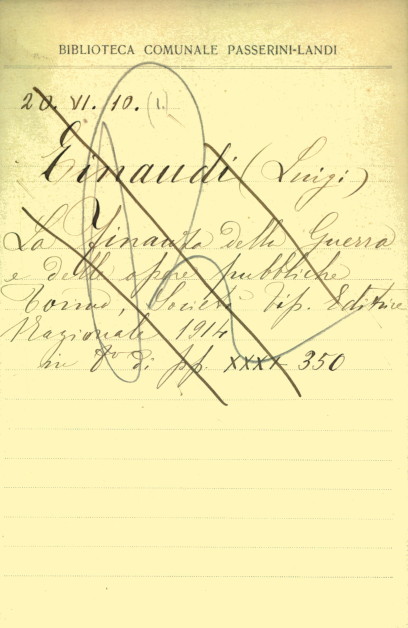 BIBLIOTECA COMUNALE PASSERINI-LANDI
20. VI. 10. (1.)
Einaudi (Luigi)
La Finanza della Guerra
e delle opere pubbliche
Torino, Società Tip. Editrice
Nazionale 1914
in 8º di pp. XXXI-350